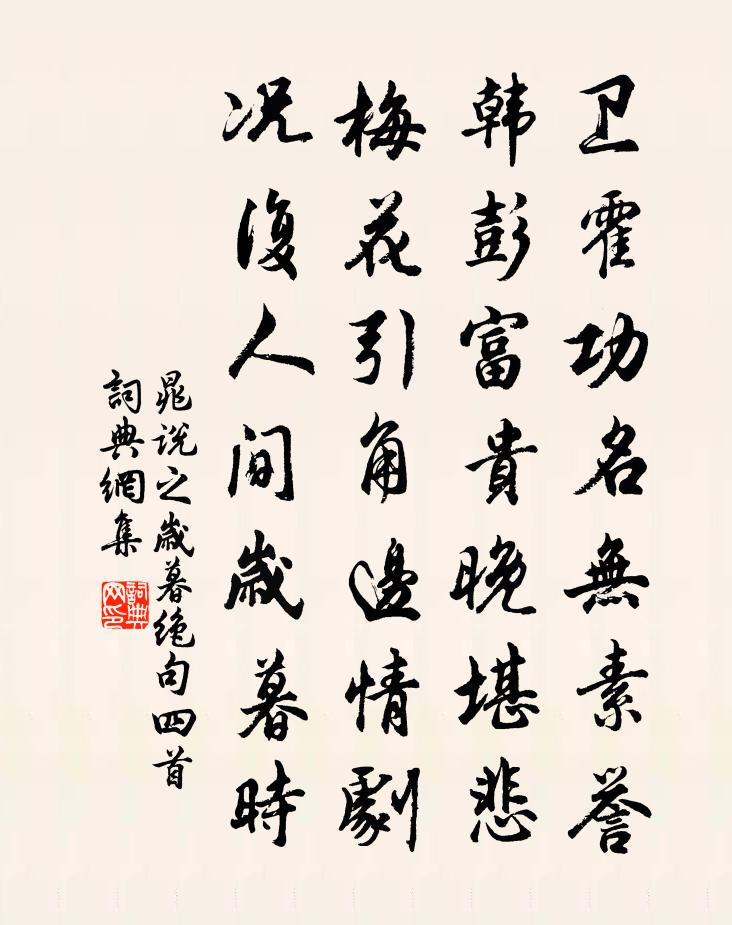 卫霍功名無素誉
韩彭富貴晚堪悲
梅花引角邊情劇
况復人间歲暮時
晁说之歲暮绝句四首
詞典網集
詞典网印